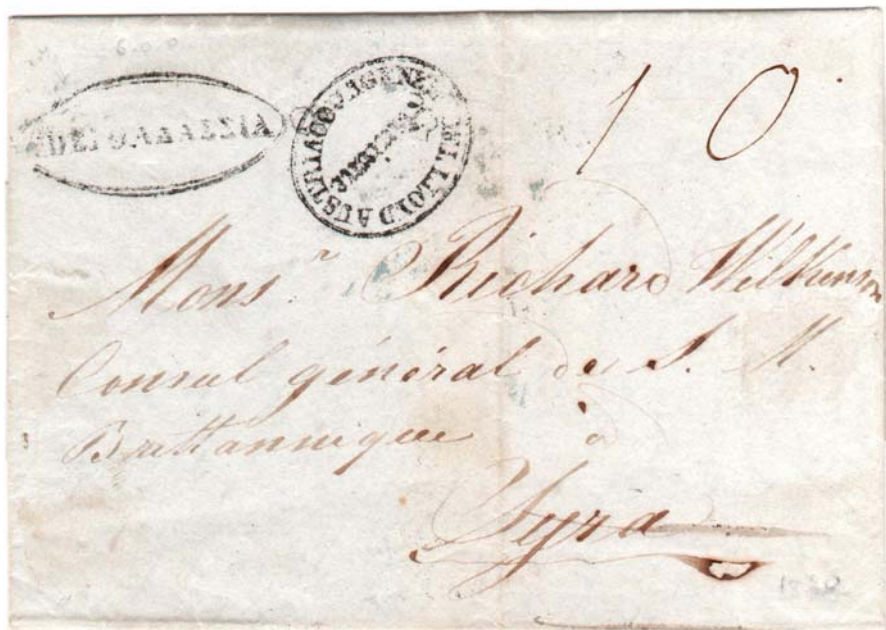 ΘΑΛΑΣΣΙΑ
AGENZIA DEL LLOYD AUSTRIACO
10
Mons.r Richard Wilkinson
Consul général de S. M.
Brittannique à
Syra